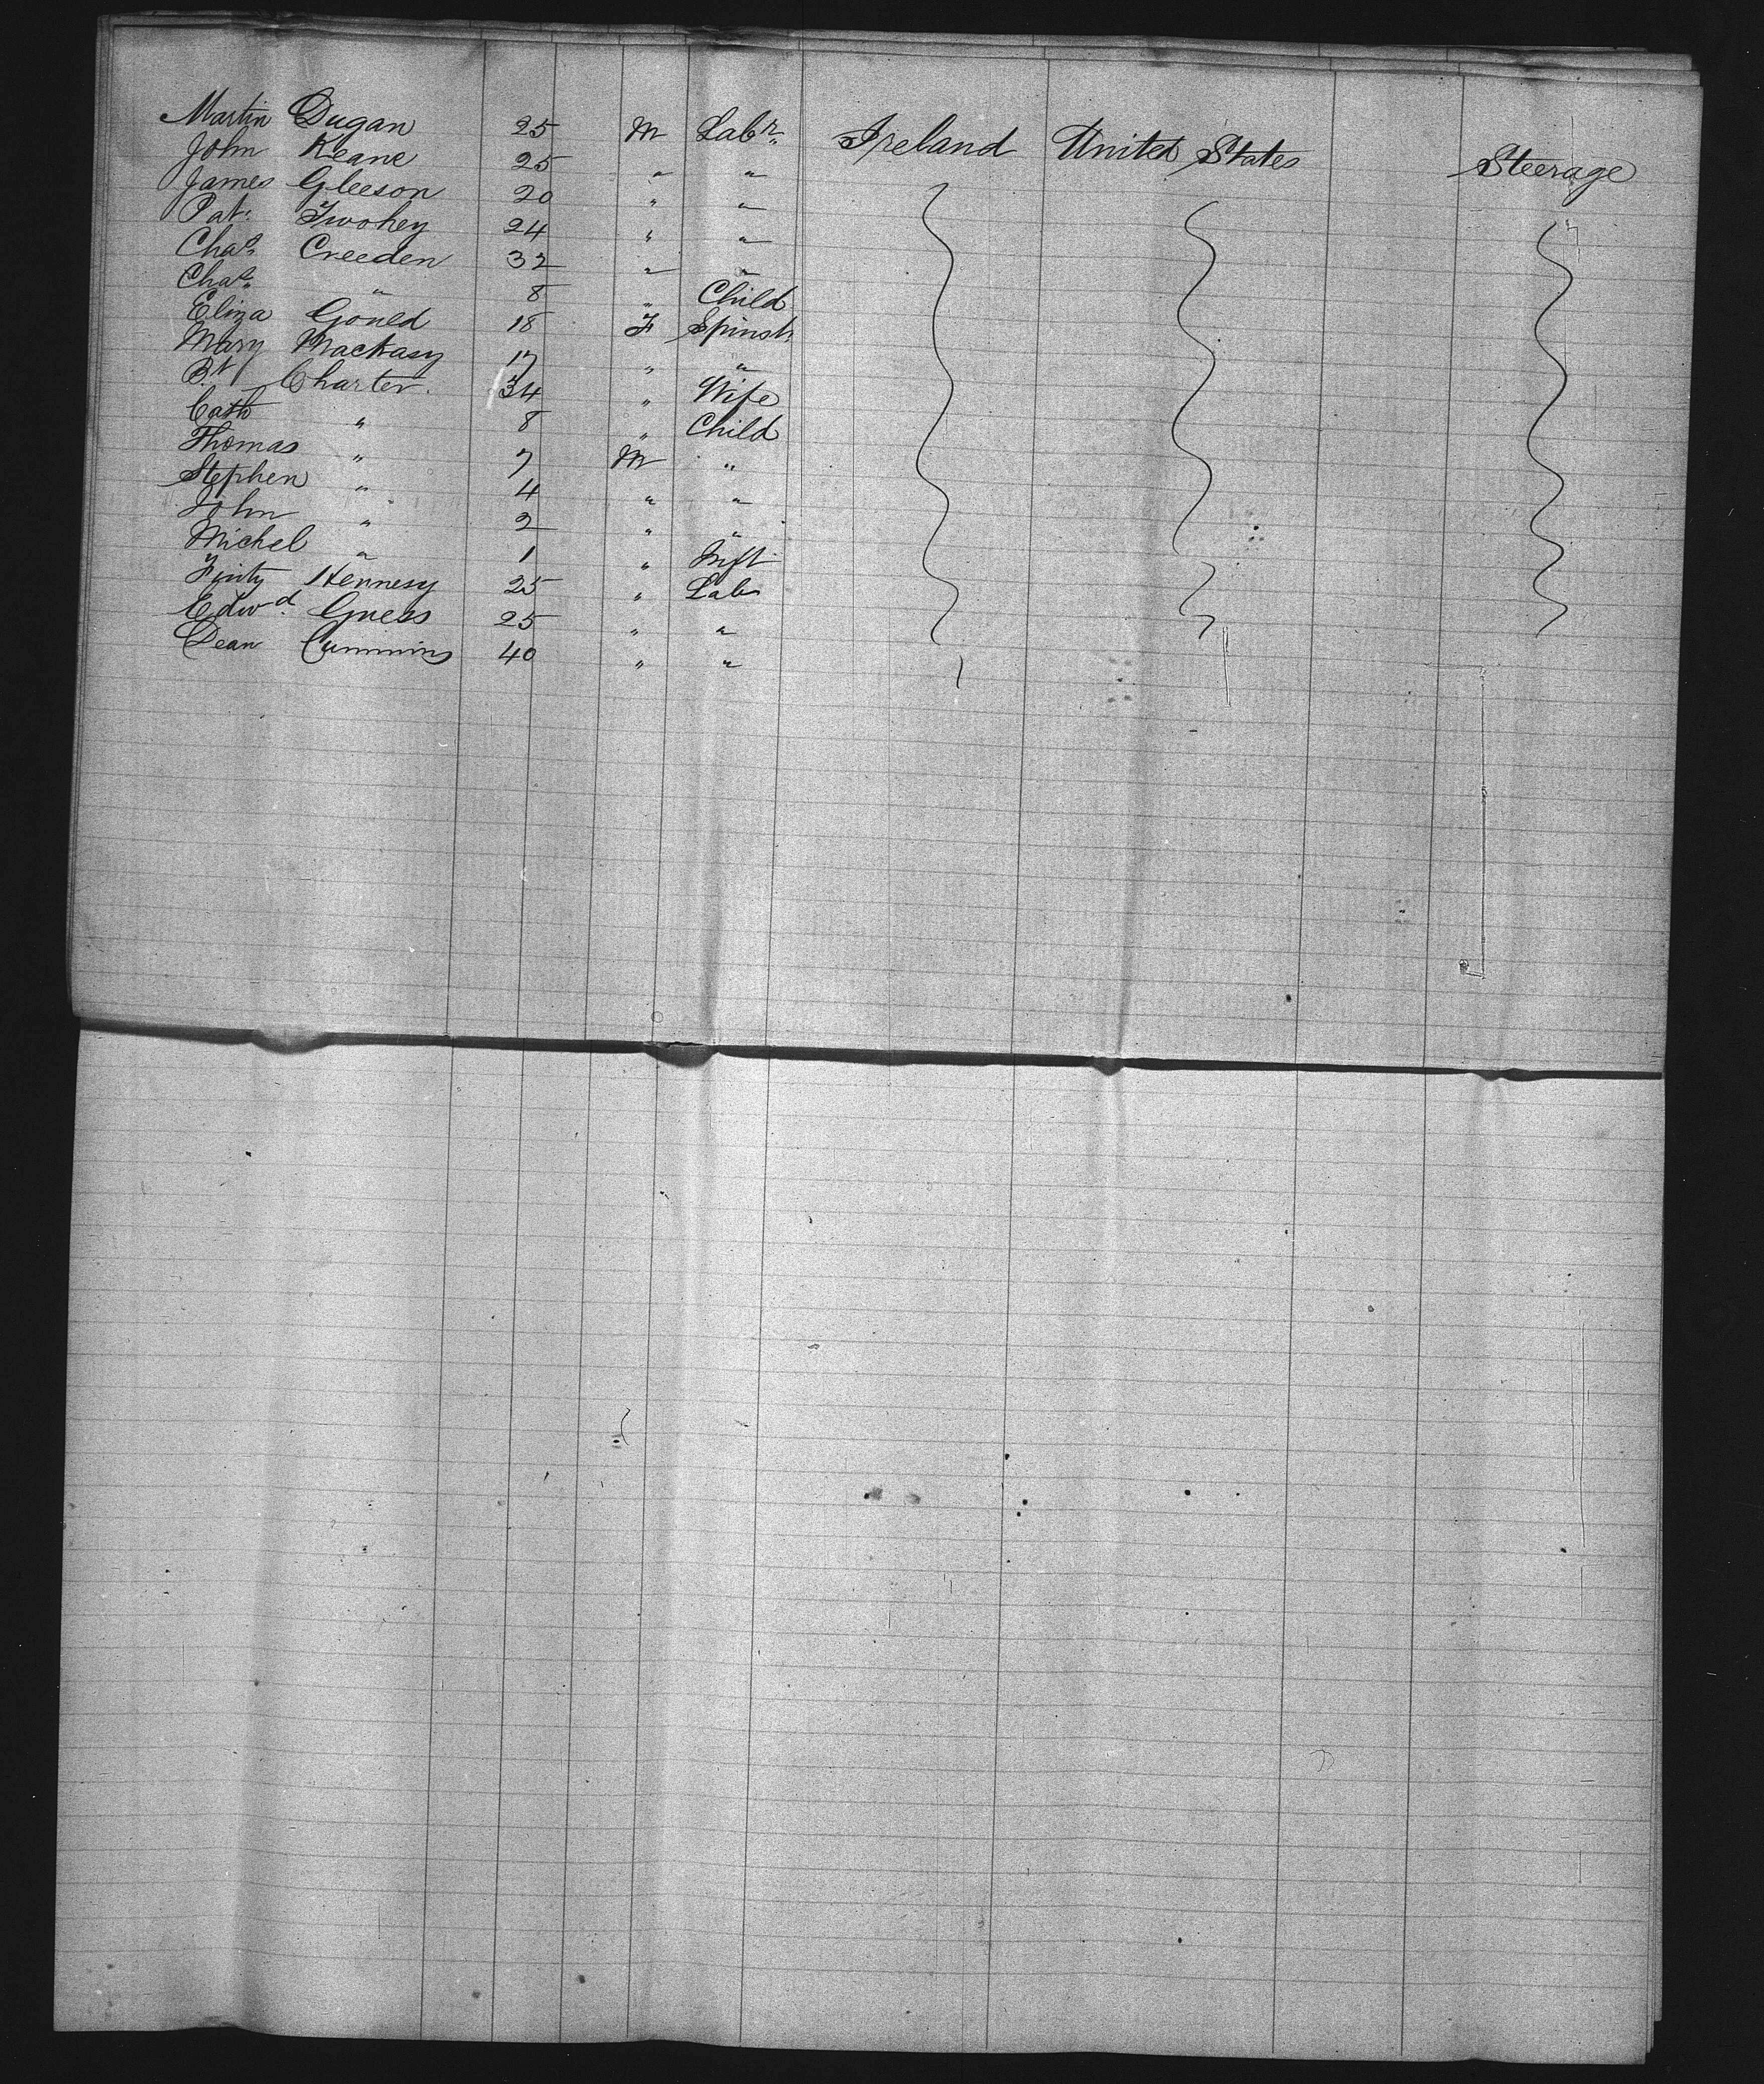 Martin Dugan 25 M Labr. Ireland United States Steerage
John Keane 25 " "
James Gleeson 20 " "
Pat. Twohey 24 " "
Chas. Creeden 32 " "
Chas. " 8 " Child
Eliza Gould 18 F Spinstr
Mary Mackasy 17 " "
Bt. Charter. 34 " Wife
Cath " 8 " Child
Thomas " 7 M "
Stephen " 4 " "
John " 2 " "
Michel " 1 " Inft
Hennesy 25 " Lab
Edwd. 25 " "
Dean Cummins 40 " "